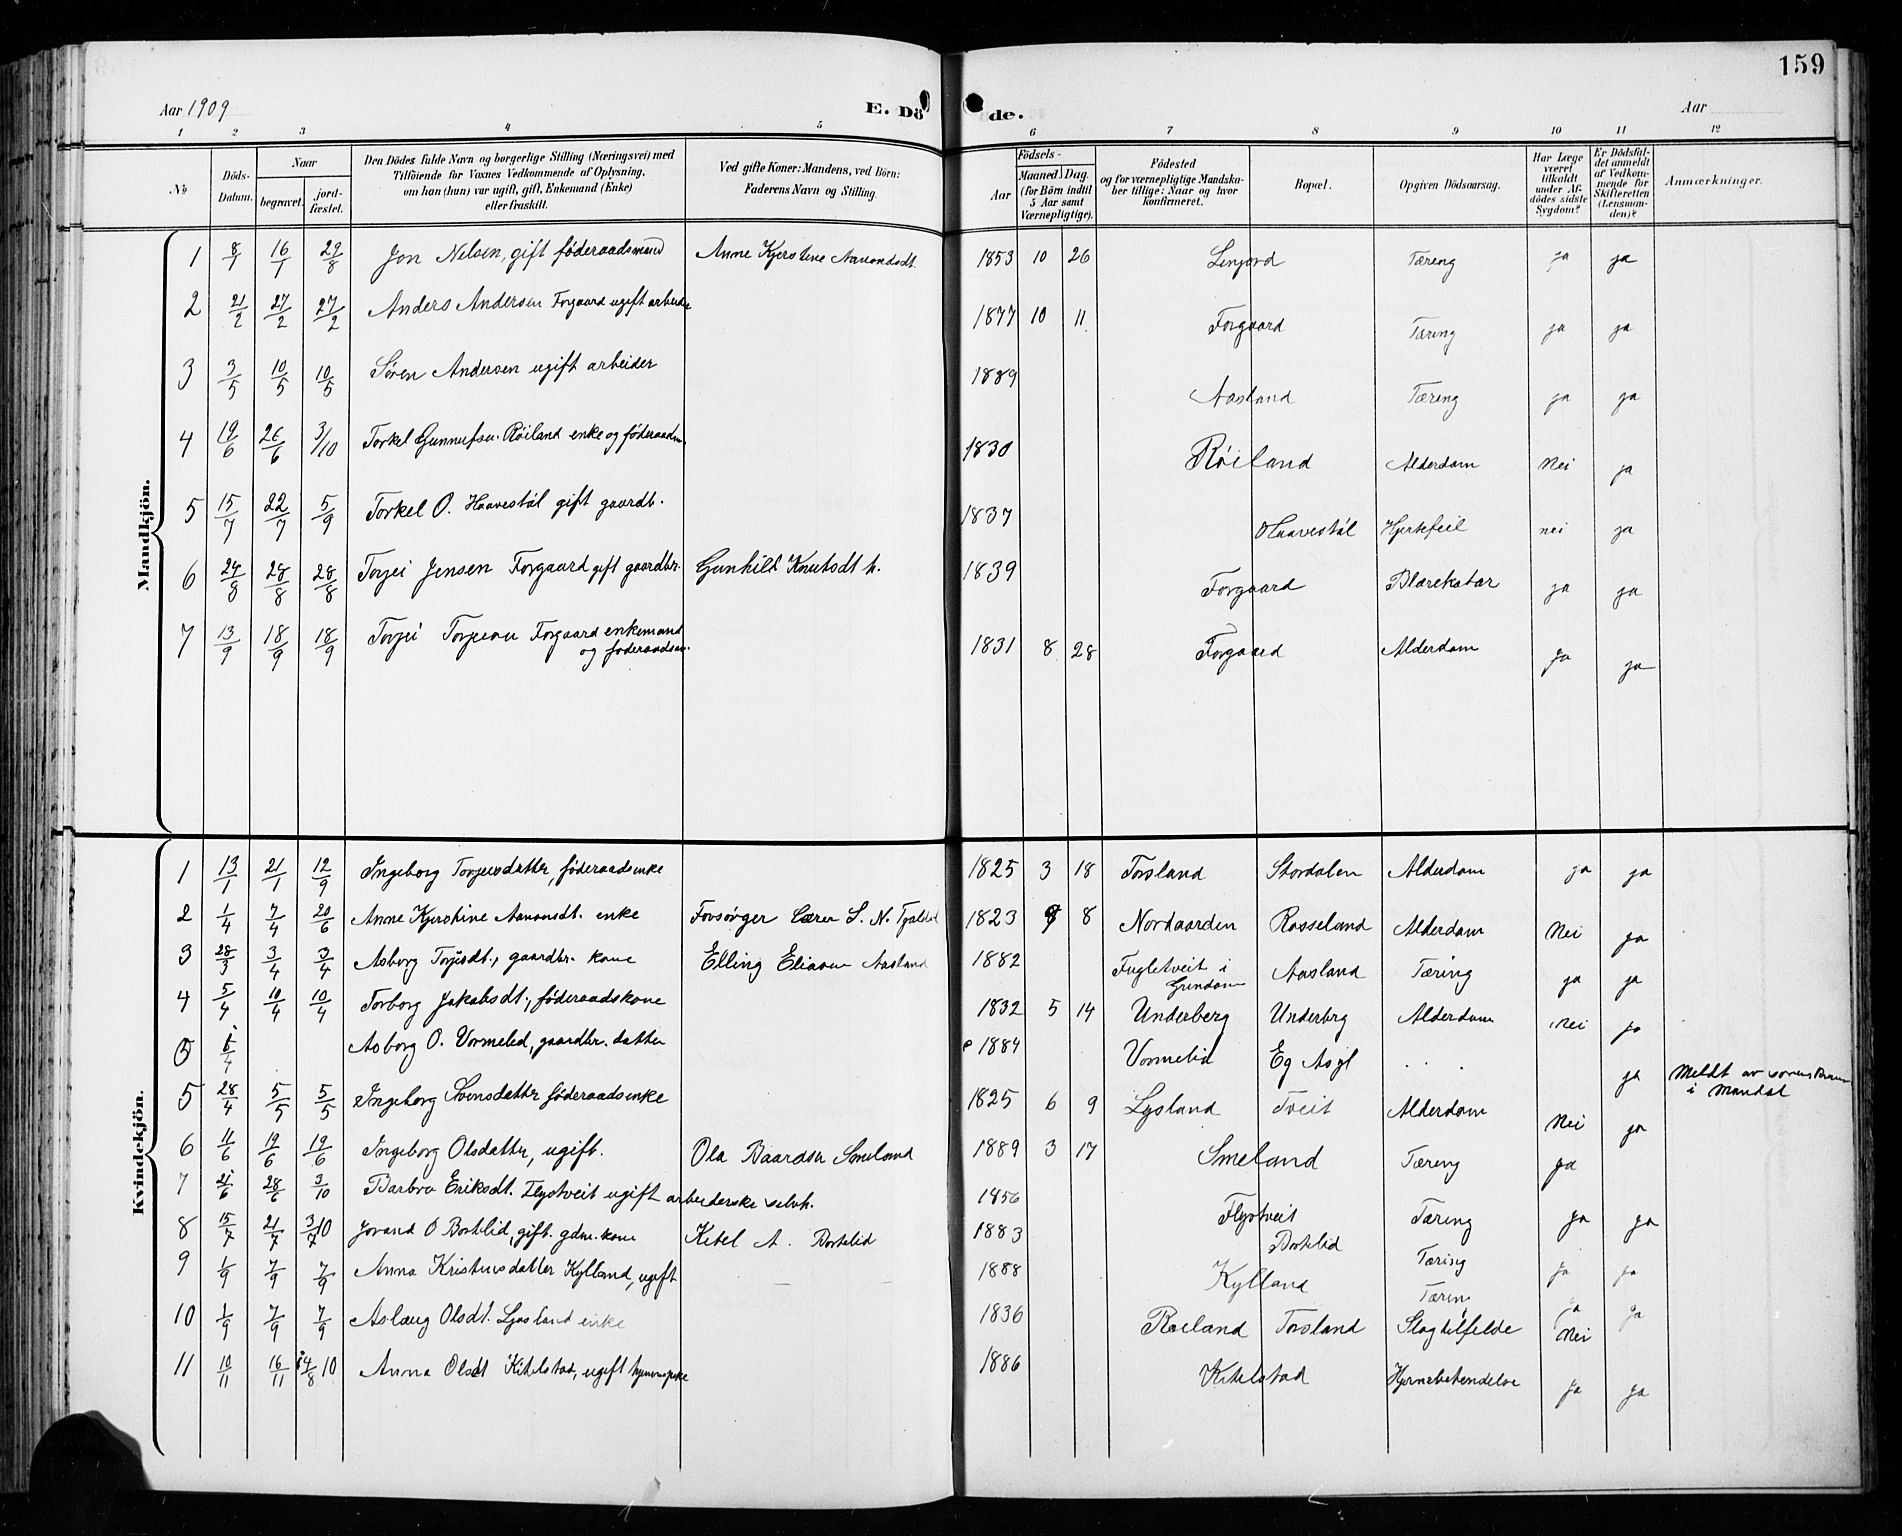 159
Aar 1909
E. Dö de.
Aar
1 2 3 4 5 6 7 8 9 10 11 12
No
Döds-Datum.
Naar
begravet.
jord-fæstet.
Den Dödes fulde Navn og borgerlige Stilling (Næringsvei) med
Tilföiende for Voxnes Vedkommende af Oplysning,
om han (hun) var ugift, gift, Enkemand (Enke)
eller fraskilt.
Ved gifte Koner: Mandens, ved Börn:
Faderens Navn og Stilling.
Födsels-
Aar
Maaned. Dag.
(for Börn indtil
5 Aar samt
Værnepligtige).
Födested
og for værnepligtige Mandska-
ber tillige: Naar og hvor
konfirmeret.
Bopæl.
Opgiven Dödsaarsag.
Har Læge
været
tilkaldt
under Af-
dödes sidste
Sygdom?
Er Dödsfal-
det anmeldt
af Vedkom-
mende for
Skifteretten
(Lensman-
den)?
Anmærkninger.
Mandkjön.
1 8/1 16/1 29/8 Jon Nelsen, gift føderaadsmand Anne Kjerstine Aanondsdt. 1853 10 26 Tæring ja ja
2 21/2 27/2 27/2 Anders Andersen Forgaard ugift arbeider 1877 10 11 Forgaard Tæring ja ja
3 3/5 10/5 10/5 Søren Andersen ugift arbeider 1889 Aasland Tæring ja ja
4 19/6 26/6 3/10 Torkel Gunnufsen Røiland enke og føderaadm. 1830 Røiland Alderdom Nei ja
5 15/7 22/7 5/9 Torkel O. Haavestøl gift gaardb. 1837 Haavestøl Hjertefeil nei ja
6 24/8 28/8 28/8 Torjei Jensen Forgaard gift gaardbr. Gunhild Knutsdt h. 1839 Forgaard Blærekatar ja ja
7 13/9 18/9 18/9 Torjei Torjesen Forgaard enkemand
og føderaadsm. 1831 8 28 Forgaard Alderdom Ja ja
Kvindekjön.
1 13/1 21/1 12/9 Ingeborg Torjeisdatter, føderaadsenke 1825 3 18 Torsland Stordalen Alderdom ja ja
2 1/4 7/4 20/6 Anne Kjerstine Aanonsdt. enke Forsørger Lærer S. N. 1823 8 Nordgaarden Rosseland Alderdom Nei ja
3 28/3 3/4 3/4 Asborg Torjusdt., gaardbr. kone Elling Eliasen Aasland 1882 Fugletveit i
Grindom Aasland Tæring ja ja
4 5/4 10/4 10/4 Torborg Jakobsdt., føderaadskone 1832 5 14 Underberg Underbrg Alderdom Nei ja
5 6/4 Asborg O. Vormelid, gaardbr. datter 1884 Vormelid Eg Asyl ja Meldt av
i Mandal
5 28/4 5/5 5/5 Ingeborg Svensdatter føderaadsenke 1825 6 9 Lysland Tveit Alderdom Nei ja
6 11/6 19/6 19/6 Ingeborg Olsdatter, ugift. Ola Baardsen Smeland 1889 3 17 Smeland Tæring ja
7 21/6 28/6 3/10 Barbro Eriksdt. Flystveit ugift arbeiderske selvh. 1856 Flystveit Tæring Ja ja
8 15/7 21/7 3/7 10 Jorand O Bortelid, gift. gdm. kone Ketel A. Bortelid 1883 Bortelid Tæring ja ja
9 1/9 7/9 7/9 Anna Kristensdatter Kylland, ugift 1888 Kylland Tæring ja ja
10 1/9 7/9 7/9 Aslaug Olsdt. Ljosland enke 1836 Røiland Torsland Slagtilfelde Nei
11 10/11 16/11 14/8 10 Anna Olsdt Kitelstad, ugift 1886 Kitelstad Hjernebetendelse Ja ja